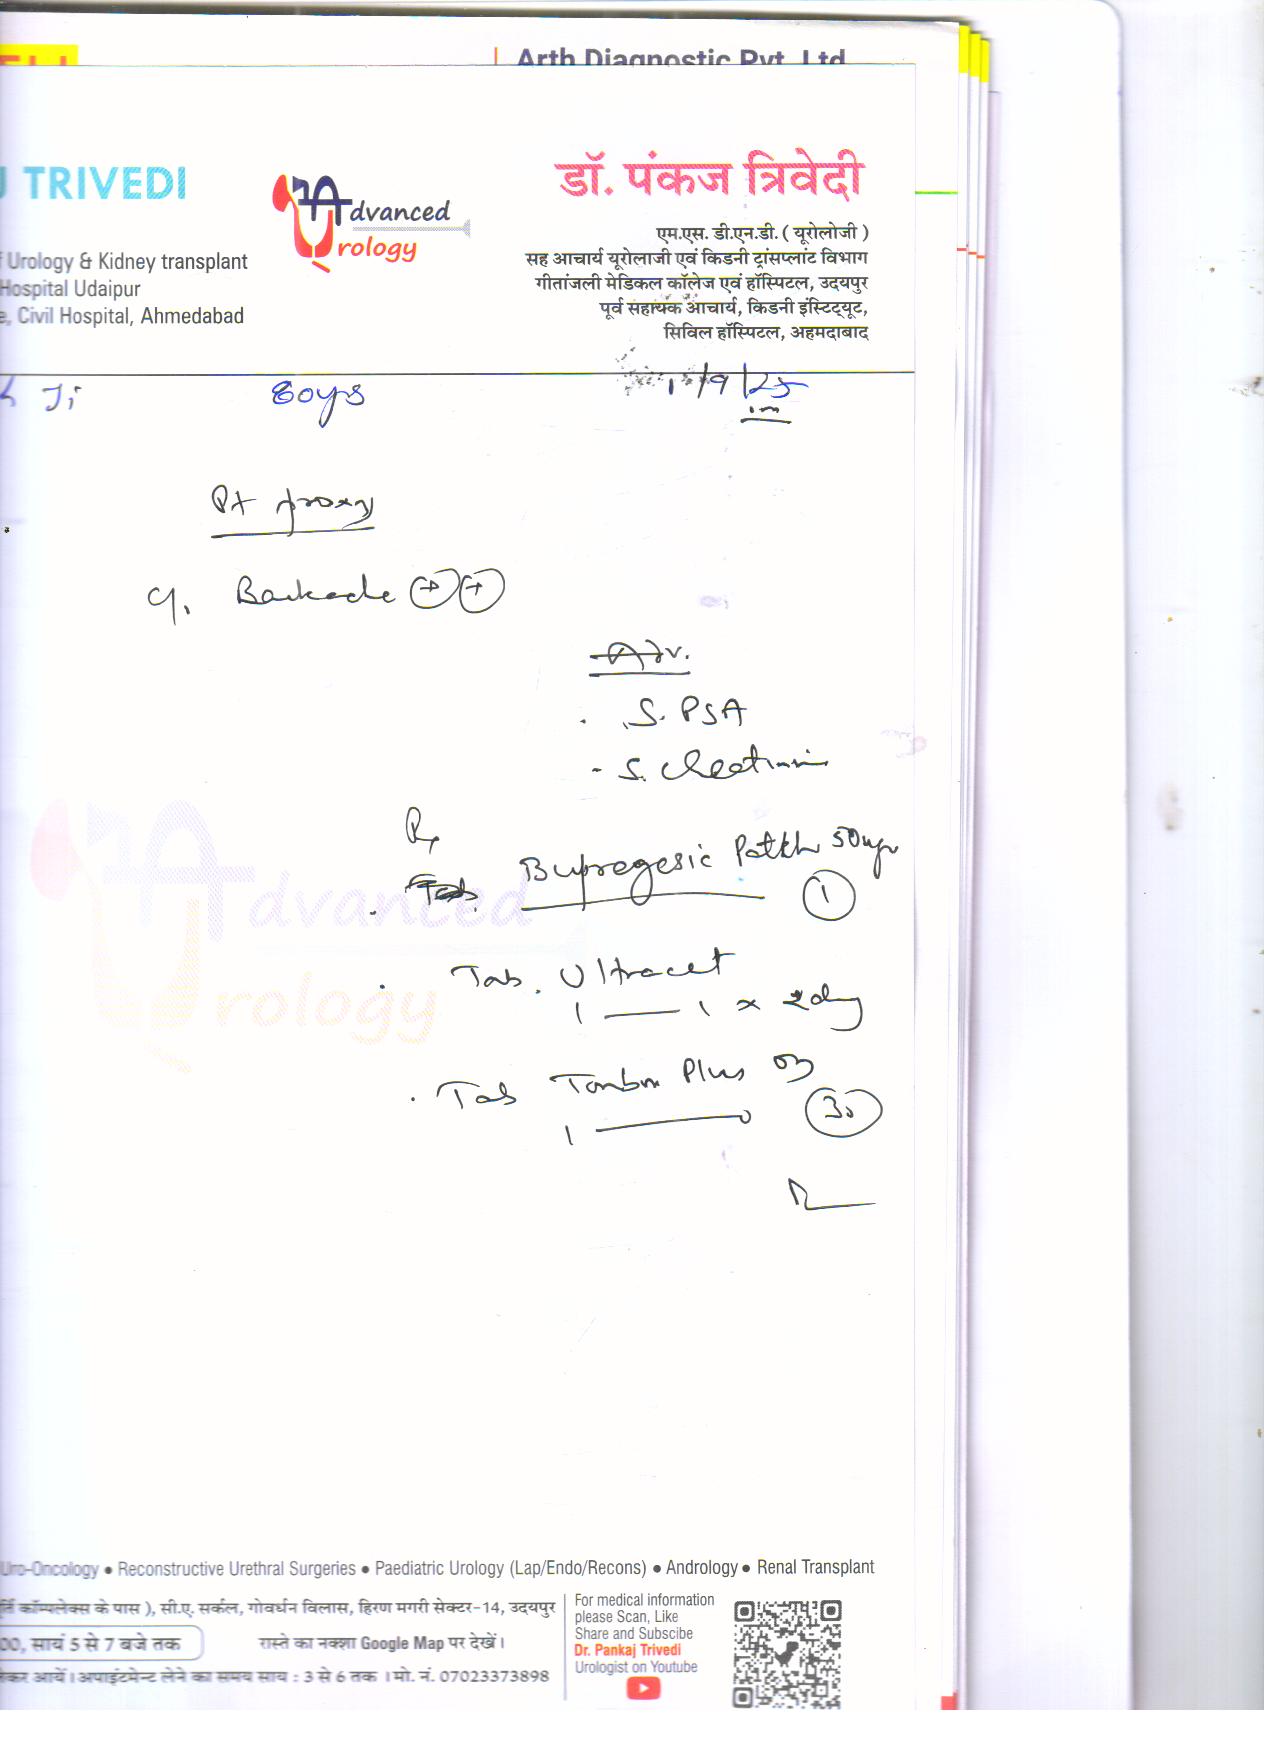 Arth Diagnostic Pvt. Ltd
TRIVEDI
Urology & Kidney transplant
Hospital Udaipur
Civil Hospital, Ahmedabad
Advanced
Urology
डॉ. पंकज त्रिवेदी
एम.एस. डी.एन.डी. ( यूरोलोजी )
सह आचार्य यूरोलाजी एवं किडनी ट्रांसप्लांट विभाग
गीतांजली मेडिकल कॉलेज एवं हॉस्पिटल, उदयपुर
पूर्व सहायक आचार्य, किडनी इंस्टिट्यूट,
सिविल हॉस्पिटल, अहमदाबाद
Ji 80 yrs /9/25
Pt proxy
c/o Backache ++
Adv.
. S. PSA
- S. Creatinine
Rx
Bupregesic Patch
1
. Tab. Ultracet
1 — 1 x
. Tab Plus
1 — 0 30
Advanced
Urology
Uro-Oncology • Reconstructive Urethral Surgeries • Paediatric Urology (Lap/Endo/Recons) • Andrology • Renal Transplant
कॉम्पलेक्स के पास ), सी.ए. सर्कल, गोवर्धन विलास, हिरण मगरी सेक्टर-14, उदयपुर
00, सायं 5 से 7 बजे तक
रास्ते का नक्शा Google Map पर देखें।
आयें। अपाइंटमेन्ट लेने का समय साय : 3 से 6 तक । मो. नं. 07023373898
For medical information
please Scan, Like
Share and Subscibe
Dr. Pankaj Trivedi
Urologist on Youtube